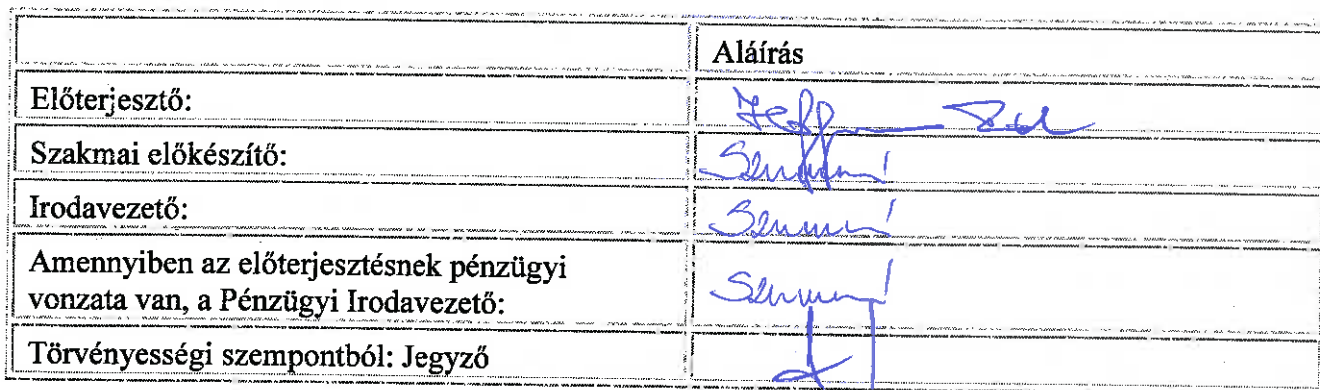 Aláírás
Előterjesztő:
Szakmai előkészítő:
Irodavezető:
Amennyiben az előterjesztésnek pénzügyi
vonzata van, a Pénzügyi Irodavezető:
Törvényességi szempontból: Jegyző